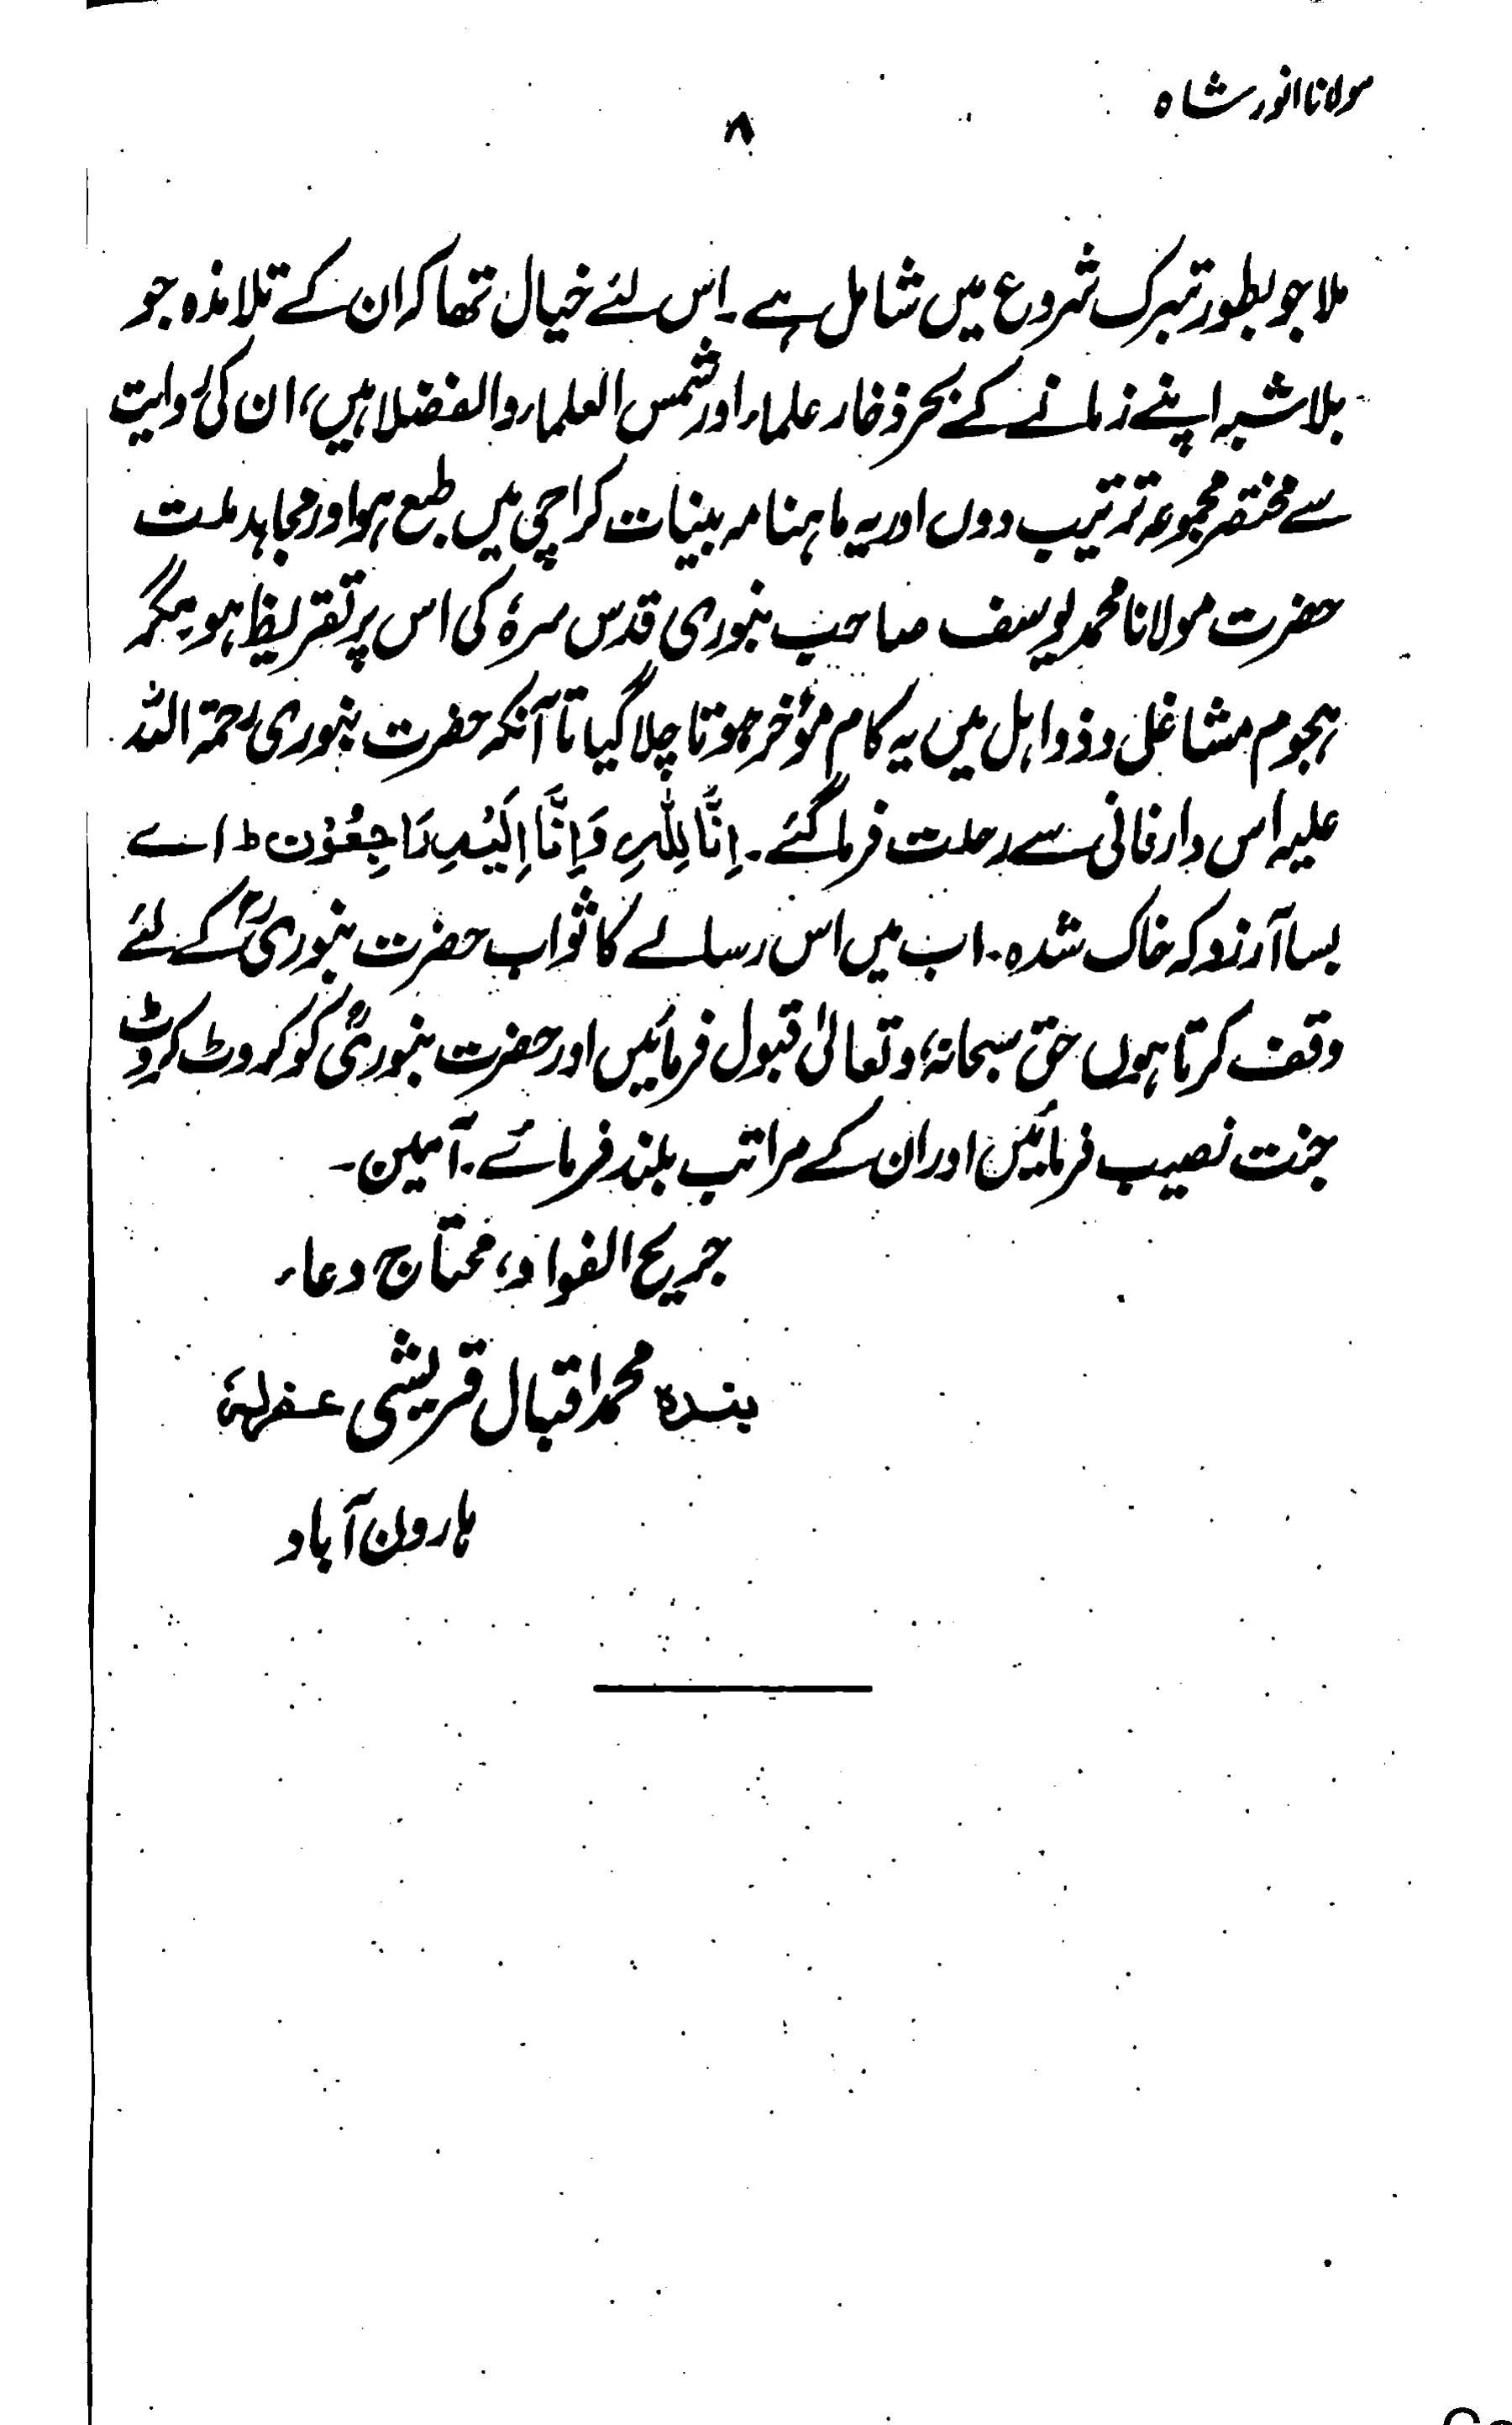 مولانا انور شاہ
۸
ملا جو بطور تبرک شروع میں شامل ہے۔ اس لئے خیال تھا کہ ان کے تلامذہ جو
بلاشبہ اپنے زمانے کے بحر ذخار علماء اور شمس العلماء والفضلا ہیں، ان کی روایت
سے مختصر مجموعہ ترتیب دوں اور یہ ماہنامہ بینات کراچی میں طبع ہو اور مجاہد ملت
حضرت مولانا محمد یوسف صاحب بنوری قدس سرہٗ کی اس پر تقریظ ہو۔ مگر
ہجوم مشاغل و ذواہل میں یہ کام مؤخر ہوتا چلا گیا تا آنکہ حضرت بنوری رحمۃ اللہ
علیہ اس دار فانی سے رحلت فرما گئے۔ اِنَّا لِلّٰہِ وَ اِنَّا اِلَیْہِ رَاجِعُوْن ط اے
بسا آرزو کہ خاک شدہ۔ اب میں اس رسالے کا ثواب حضرت بنوریؒ کے لئے
وقف کرتا ہوں حق سبحانہٗ وتعالیٰ قبول فرمائیں اور حضرت بنوریؒ کو کروٹ کروٹ
جنت نصیب فرمائیں اور ان کے مراتب بلند فرمائے۔ آمین۔
جریح الفواد، محتاج دعاء
بندہ محمد اقبال قریشی غفرلہٗ
ہارون آباد